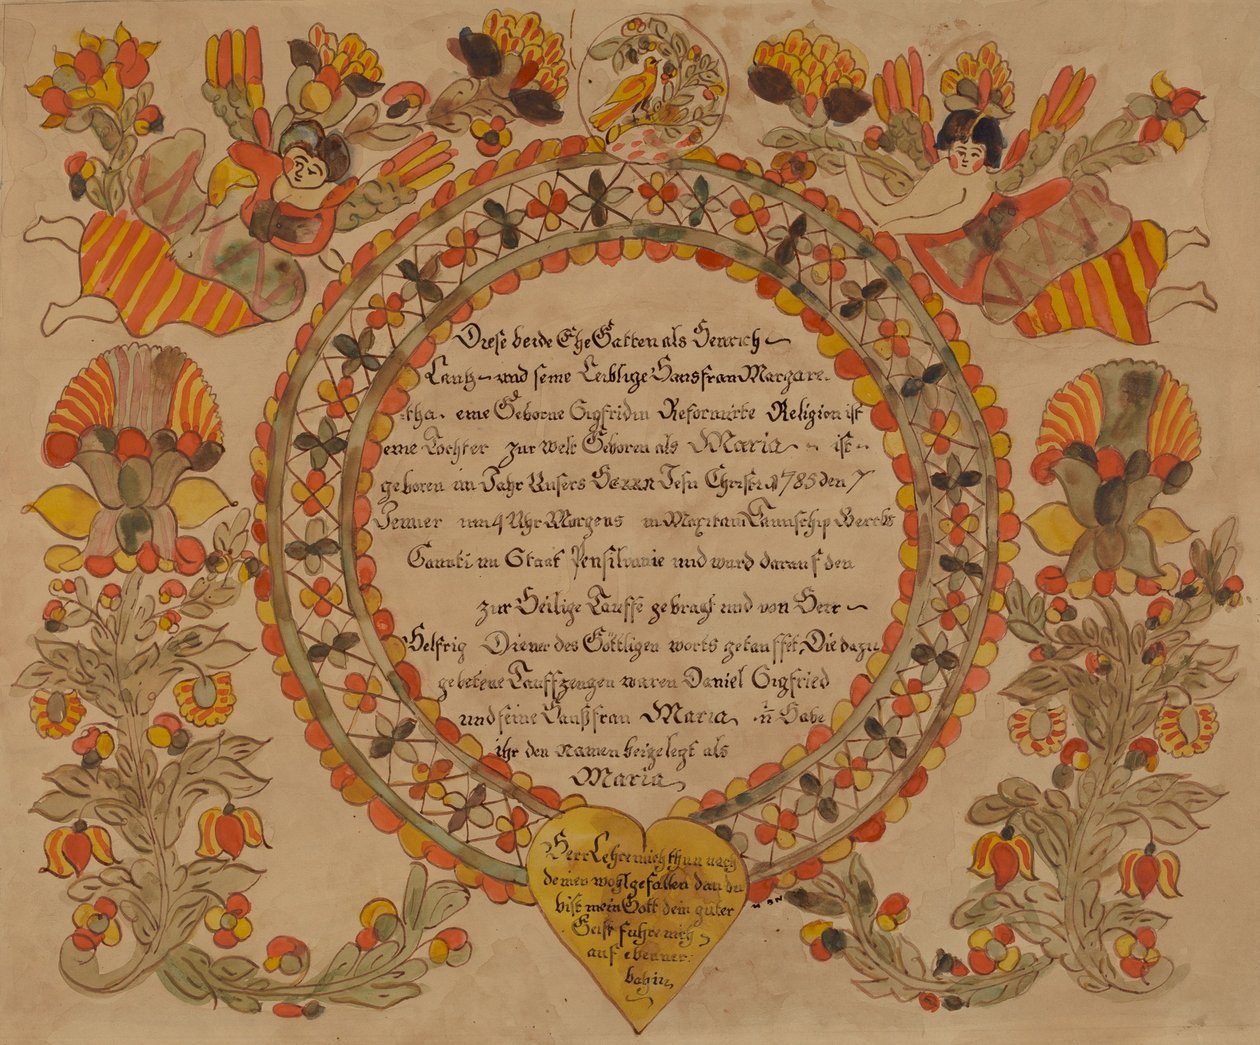 Diese beide Ehe Gatten als Henrich
Lantz und seine Leiblige Hausfrau Margare
tha eine Geborne Sigfridin Reformirte Religion ist
eine Tochter zur Welt Geboren als Maria ist
geboren im Jahr Unsers HERRN Jesu Christi 1785 den 7
Jenner um 4 Uhr Morgens in Taunschip Bercks
Caunti im Staat Pensilvanie und ward darauf den
zur Heilige Tauffe gebragt und von Herr
Helfrig Diener des Göttligen worts getauffet, Die dazu
gebetene Tauffzeugen waren Daniel Sigfried
und seine Haußfrau Maria u Habe
ihr den Namen beigelegt als
Maria
Herr Lehre mich thun nach
deinen wohlgefallen dan du
bist mein Gott dein guter
Geist fuhre mich
auf ebenner
bahn